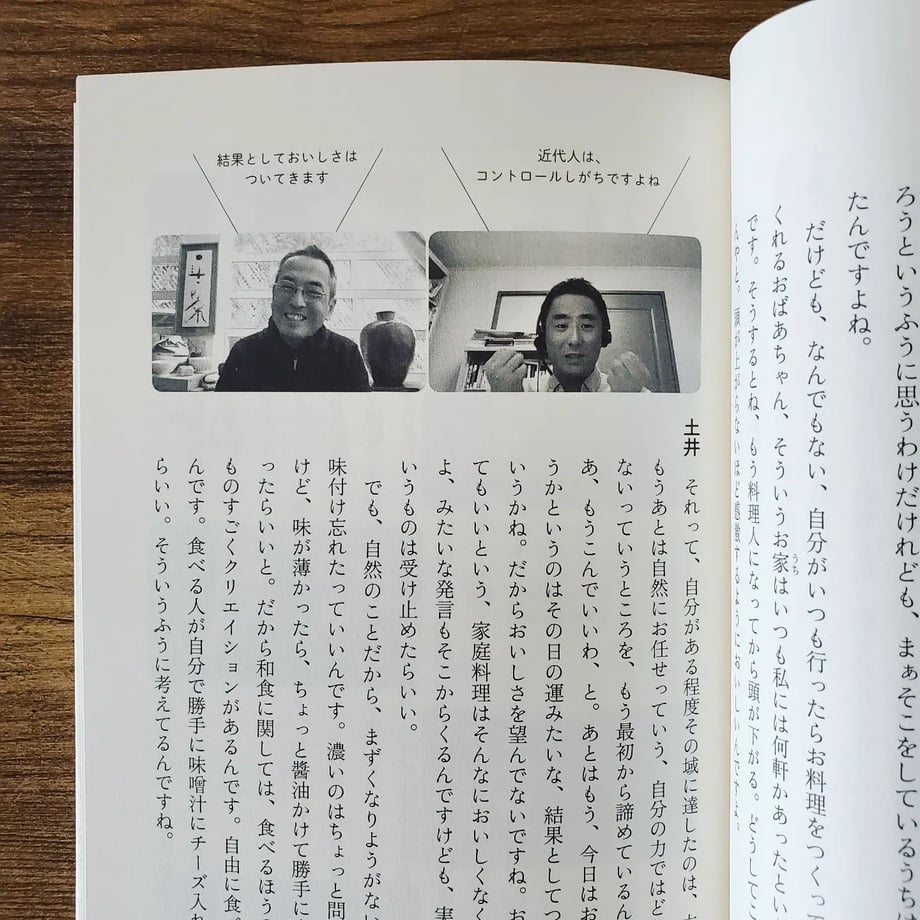 ろうというふうに思うわけだけれども、まぁそこをしているうち
たんですよね。
だけども、なんでもない、自分がいつも行ったらお料理をつくって
くれるおばあちゃん、そういうお家はいつも私には何軒かあったとい
うち
です。そうするとね、もう料理人になってから頭が下がる。どうしてこ
んやと。頭が上がらないほど感激するようにおいしいんですよ。
近代人は、
コントロールしがちですよね
結果としておいしさは
ついてきます
土井
それって、自分がある程度その域に達したのは、
もうあとは自然にお任せっていう、自分の力ではど
ないっていうところを、もう最初から諦めているん
あ、もうこんでいいわ、と。あとはもう、今日はお
うかというのはその日の運みたいな、結果としてつ
いうかね。だからおいしさを望んでないですね。お
てもいいという、家庭料理はそんなにおいしくな
よ、みたいな発言もそこからくるんですけども、実
いうものは受け止めたらいい。
でも、自然のことだから、まずくなりようがない
味付け忘れたっていいんです。濃いのはちょっと問
けど、味が薄かったら、ちょっと醬油かけて勝手に
ったらいいと。だから和食に関しては、食べるほうの
ものすごくクリエイションがあるんです。自由に食べ
んです。食べる人が自分で勝手に味噌汁にチーズ入れ
らいい。そういうふうに考えてるんですね。